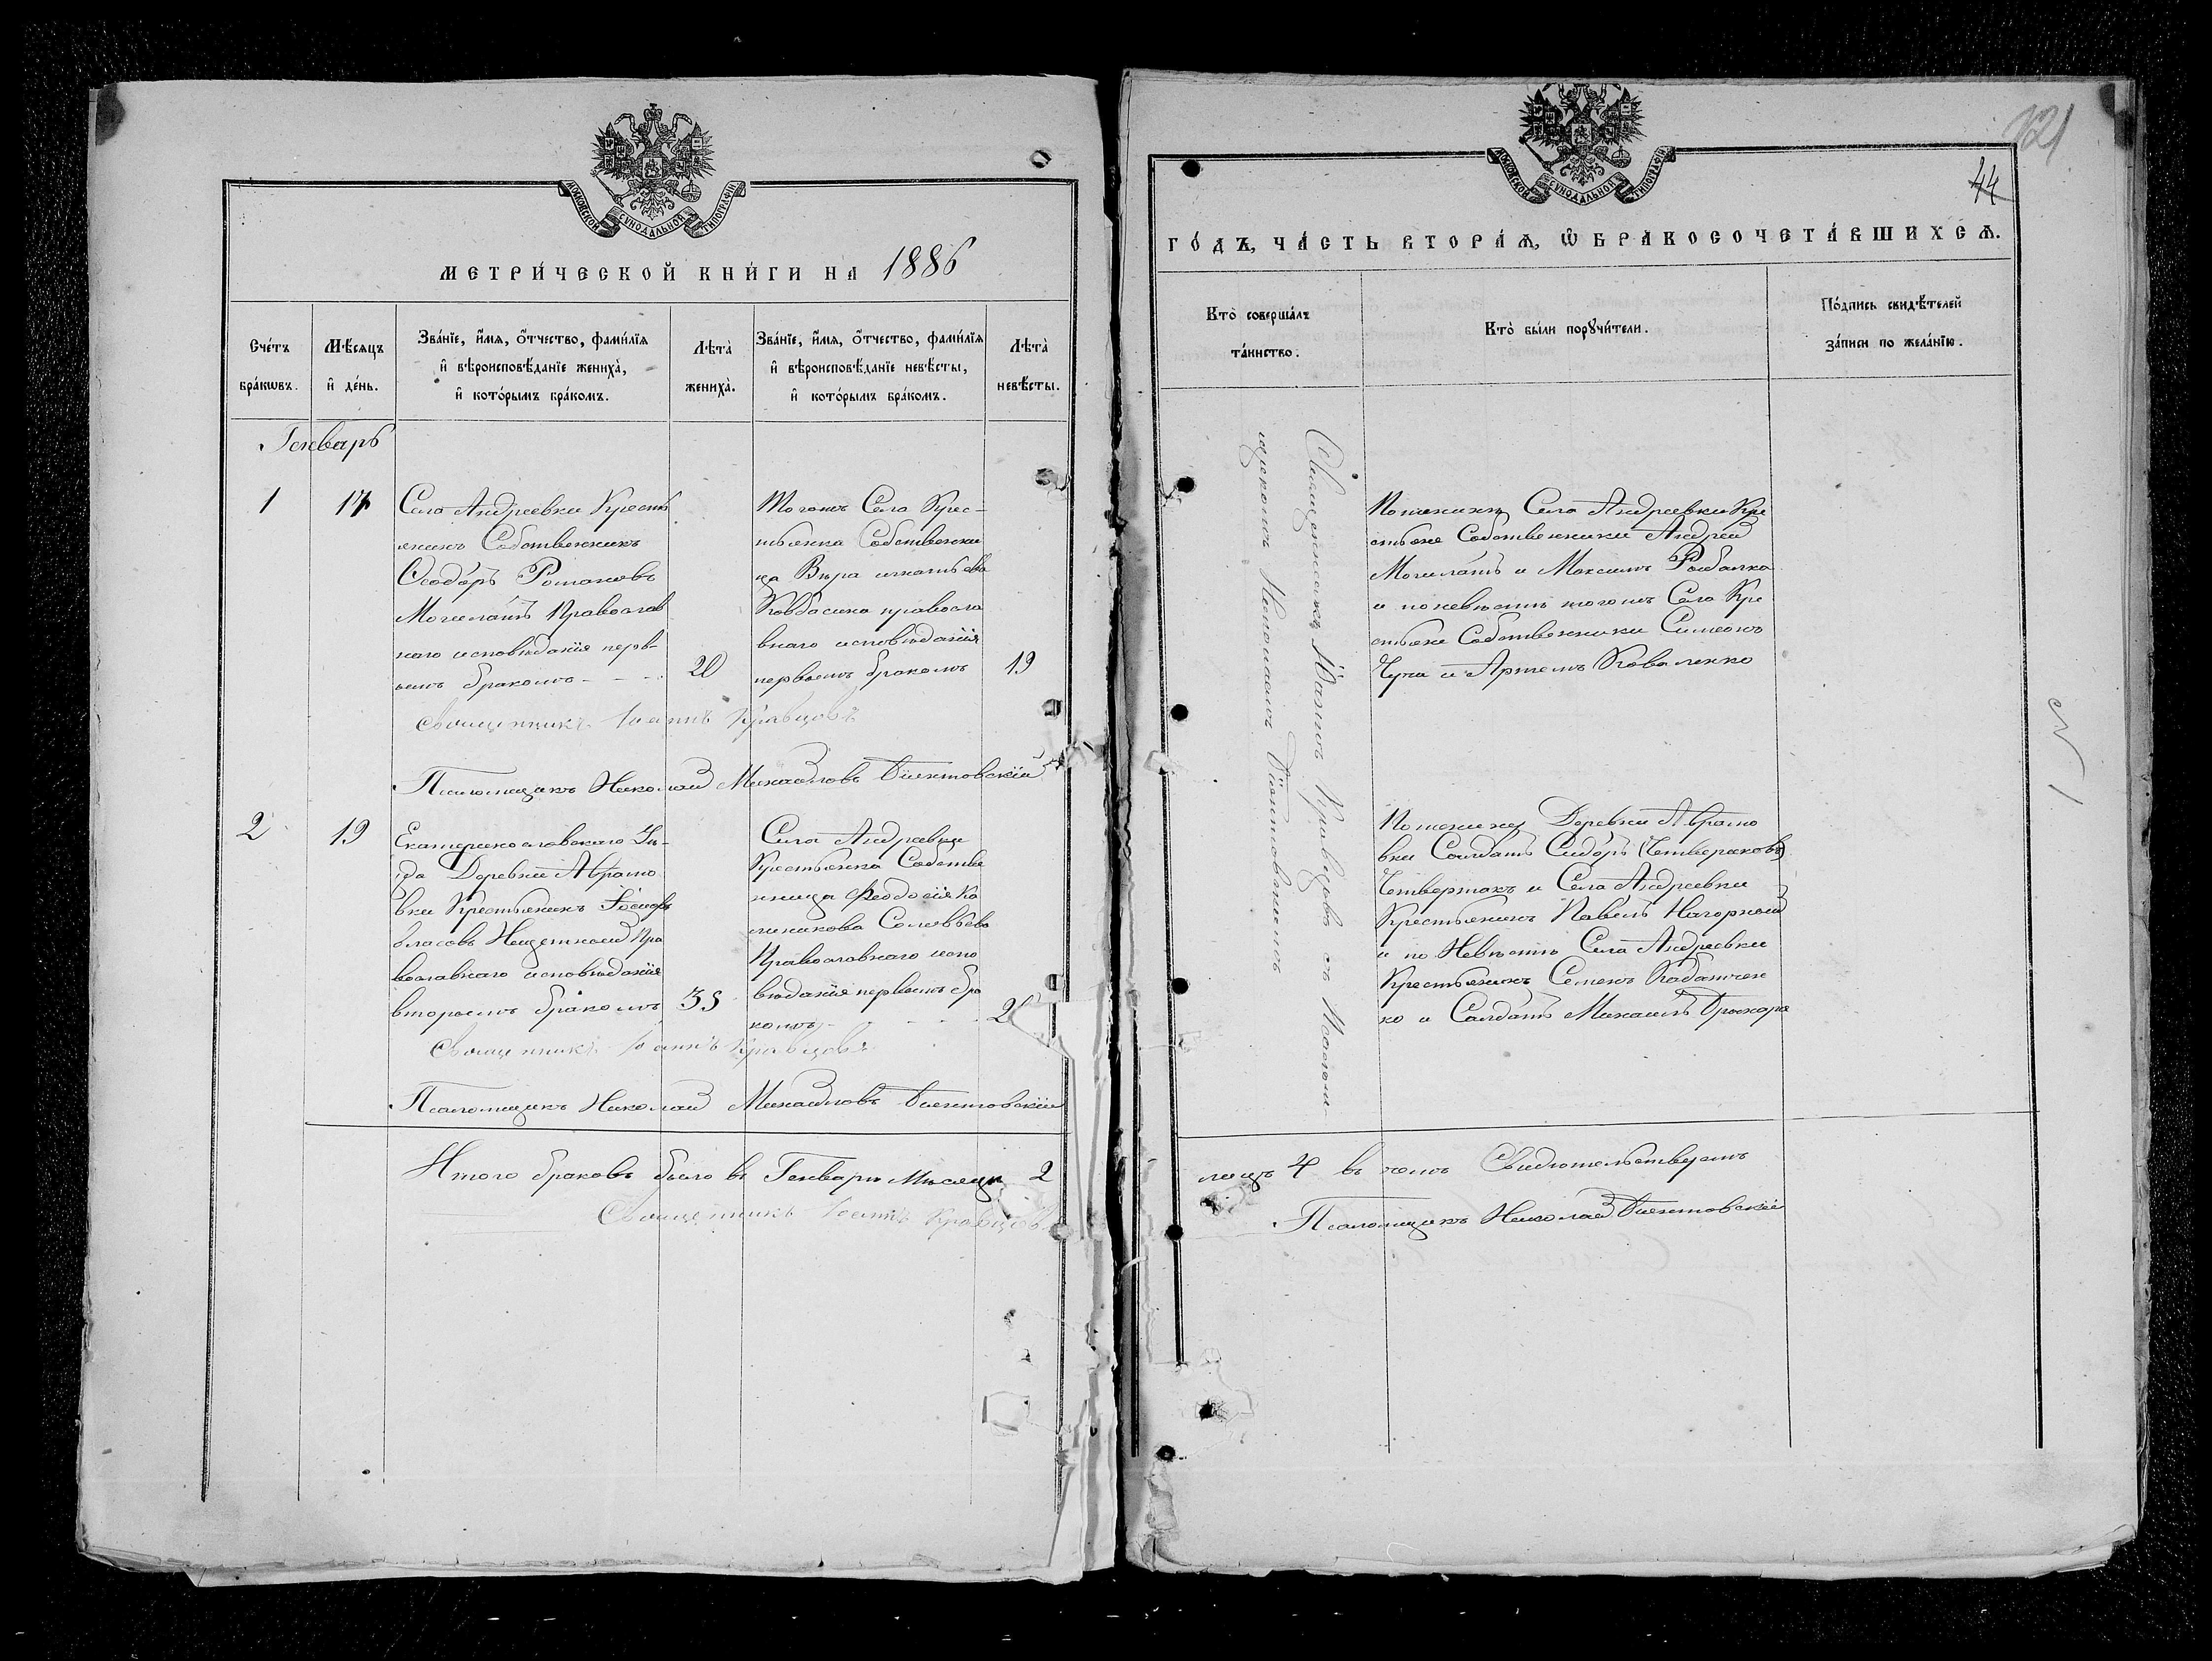 МОСКОВСКОЙ СѴНОДАЛЬНОЙ ТИПОГРАФІИ
МЕТРИ́ЧЕСКОЙ КНИ́ГИ НА 1886
Сче́тъ бра́кѡвъ.
Мѣ́сяцъ и҆ де́нь.
Зва́нїе, и҆́мя, ѻ҆́тчество, фами́лїя и҆ вѣроисповѣ́данїе жениха̀, и҆ кото́рымъ бра́комъ.
Лѣта̀ жениха̀.
Зва́нїе, и҆́мя, ѻ҆́тчество, фами́лїя и҆ вѣроисповѣ́данїе невѣ́сты, и҆ кото́рымъ бра́комъ.
Лѣта̀ невѣ́сты.
Генварь
1
17
Села Андреевки Кресть
янинъ Собственникъ
Ѳеодоръ Романовъ
Могилатъ Православ
наго исповѣданія перв-
ымъ бракомъ - - -
20
Тогожъ Села Крес-
тьянка Собственни
ца Вѣра Игнатьева
Ковбасина правосла
внаго исповѣданія
первымъ бракомъ
19
Священникъ Іоаннъ Кравцовъ
Псаломщикъ Николай Михайловъ
2
19
Екатеринославскаго Уѣ-
зда Деревни Абрамо
вки Крестьянинъ
Власовъ Нищетной Пра
вославнаго исповѣданія
вторымъ бракомъ
35
Села Андреевки
Крестьянка Собстве
нница Феодосія Ка
линикова Соловьева
Православнаго испо
вѣданія первымъ бра
комъ - - - -
Священникъ Іоаннъ Кравцовъ
Псаломщикъ Николай Михайловъ
Итого браковъ было въ Генварѣ Мѣсяцѣ 2
Священникъ Іоаннъ Кравцовъ
МОСКОВСКОЙ СѴНОДАЛЬНОЙ ТИПОГРАФІИ
121
44
ГО́ДЪ, ЧА́СТЬ ВТОРА́Ѧ, Ѡ҆ БРАКОСОЧЕТА́ВШИХСѦ.
Кто̀ соверша́лъ та́инство.
Кто̀ бы́ли порꙋчи́тели.
По́дпись свидѣ́телей за́писи по жела́нїю.
Священникъ Іоаннъ Кравцовъ съ Псалом-
щикомъ Николаемъ
По женихѣ Села Андреевки Кре
стьяне Собственники Андрей
Могилатъ и Максимъ Рыбалка
и по невѣстѣ тогожъ Села Кре
стьяне Собственники Симеонъ
Чупа и Артемъ Коваленко
По женихѣ Деревни Абрамо
вки Солдатъ Сидоръ (Четвераковъ)
Четвертакъ и Села Андреевки
Крестьянинъ Павелъ Нагорный
и по Невѣстѣ Села Андреевки
Крестьянинъ Семенъ Кабатчен
ко и Солдатъ Михаилъ
лицъ 4 въ чемъ Свидѣтельствуемъ
Псаломщикъ Николай